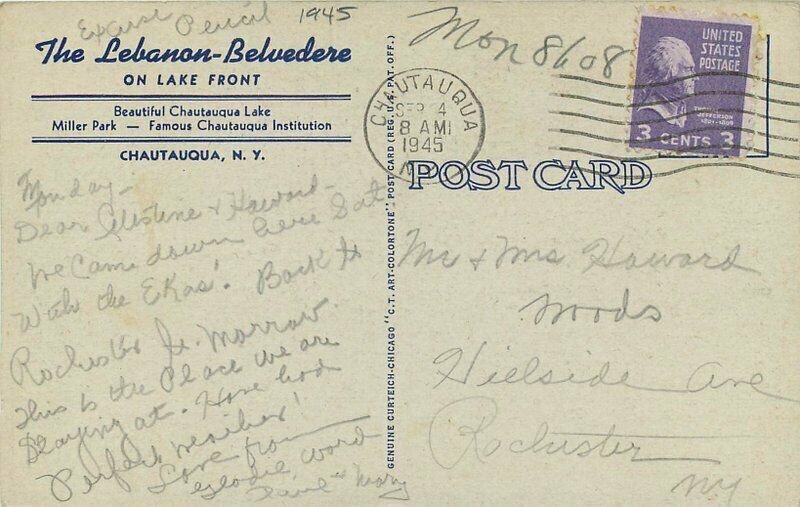 Excuse Pencil 1945
The Lebanon-Belvedere
ON LAKE FRONT
Beautiful Chautauqua Lake
Miller Park — Famous Chautauqua Institution
CHAUTAUQUA, N. Y.
Monday-
Dear Celestine & Howard-
We Came down here Sat.
With the Ekas'. Back to
Rochester To-Morrow.
This is the Place we are
Staying at. Have had
Perfect weather!
Love from
Word
Mary
GENUINE CURTEICH-CHICAGO "C.T. ART-COLORTONE" POST CARD (REG. U.S. PAT. OFF.)
Mon 8608
CHAUTAUQUA
SEP 4
8 AM
1945
N.Y.
UNITED
STATES
POSTAGE
THOMAS
JEFFERSON
1801-1809
3 CENTS 3
POST CARD
Mr & Mrs Howard
Woods
Hillside Ave
Rochester
NY